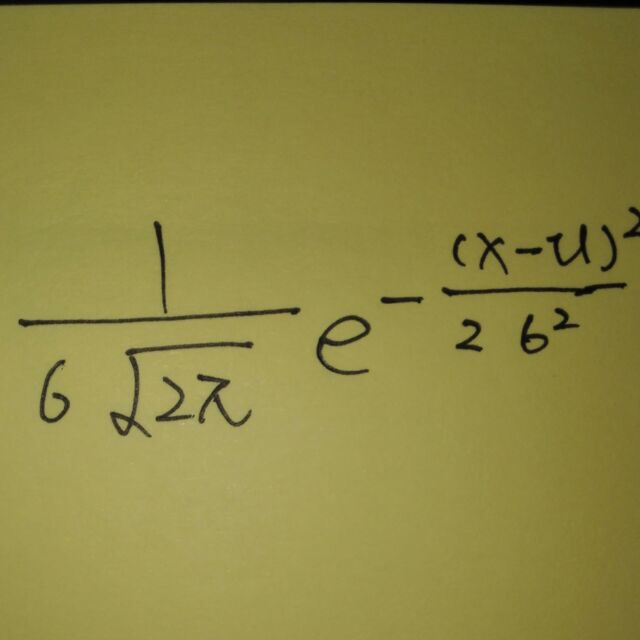 \frac{1}{6\sqrt{2\pi}} e^{-\frac{(x-u)^2}{2 6^2}}